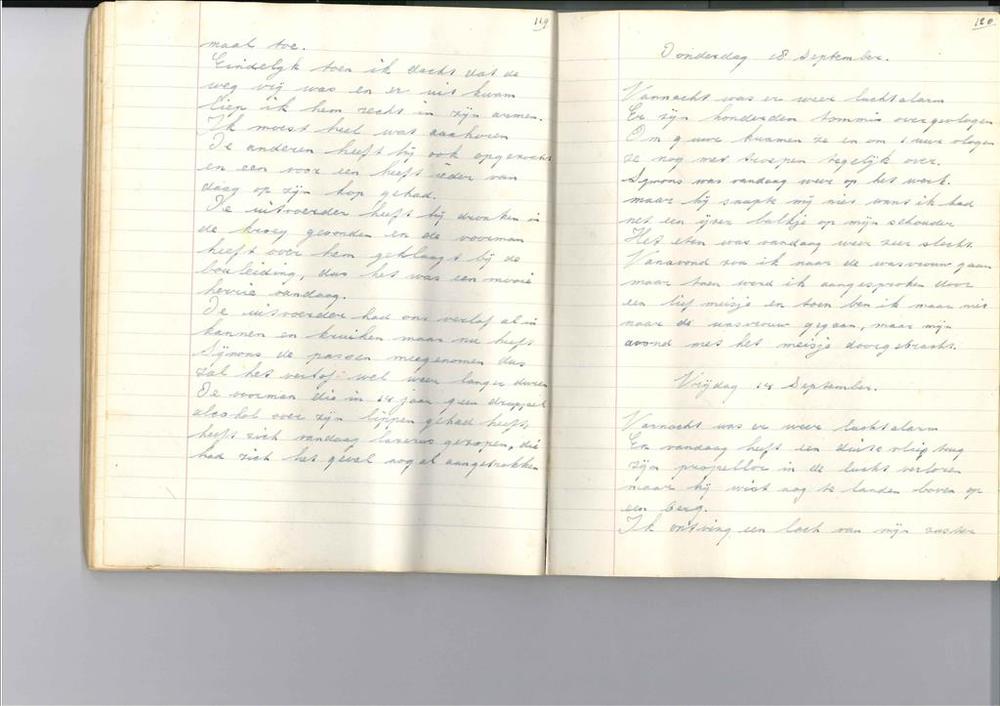 119
maal toe.
Eindelyk toen ik dacht dat de
weg vrij was en er uit kwam
liep ik hem recht in zijn armen.
Ik moest heel wat aanhoren
De anderen heeft hij ook opgezocht
en een voor een heeft ieder van
daag op zijn kop gehad.
De uitvoerder heeft hij dronken in
de kroeg gevonden en de voorman
heeft over hem geklaagt bij de
bouleiding, dus het was een mooie
herrie vandaag.
De uitvoerder had ons verlof al in
kannen en kruiken maar nu heeft
Symons de passen meegenomen dus
zal het verlof wel weer langer duren
De voorman die in 14 jaar geen druppel
alcohol over zijn lippen gehad heeft
heeft zich vandaag lazerus gezopen, die
had zich het geval nogal aangetrokken
120
Donderdag 18 September.
Vannacht was er weer luchtalarm
Er zijn honderden tommis overgevlogen
Om 9 uur kwamen ze en om 1 uur vlogen
ze nog met troepen tegelijk over.
Symons was vandaag weer op het werk.
maar hij snapte mij niet want ik had
net een ijzer balkje op mijn schouder
Het eten was vandaag weer zeer slecht.
Vanavond zou ik naar de wasvrouw gaan
maar toen werd ik aangesproken door
een lief meisje en toen ben ik maar niet
naar de wasvrouw gegaan, maar mijn
avond met het meisje doorgebracht.
Vrijdag September.
Vannacht was er weer luchtalarm
En vandaag heeft een duits vliegtuig
zijn propellor in de lucht verloren
maar hij wist nog te landen boven op
een berg.
Ik ontving een van mijn zuster